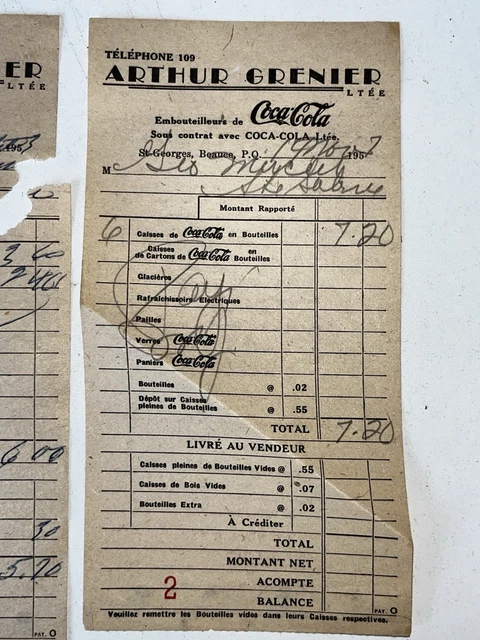 ER
LTÉE
195
3 60
6 00
30
5.70
PAT. O
TÉLÉPHONE 109
ARTHUR GRENIER
LTÉE
Embouteilleurs de Coca-Cola
Sous contrat avec COCA-COLA Ltée.
St-Georges, Beauce, P.Q. 195
M Geo Mercier
Ste Sabine
Montant Rapporté
6 Caisses de Coca-Cola en Bouteilles 7.20
Caisses de Cartons de Coca-Cola en Bouteilles
Glacières
Rafraichissoirs Electriques
Pailles
Verres Coca-Cola
Paniers Coca-Cola
Bouteilles @ .02
Dépôt sur Caisses
pleines de Bouteilles @ .55
TOTAL 7.20
LIVRÉ AU VENDEUR
Caisses pleines de Bouteilles Vides @ .55
Caisses de Bois Vides @ .07
Bouteilles Extra @ .02
À Créditer
TOTAL
MONTANT NET
2 ACOMPTE
BALANCE PAT. O
Veuillez remettre les Bouteilles vides dans leurs Caisses respectives.